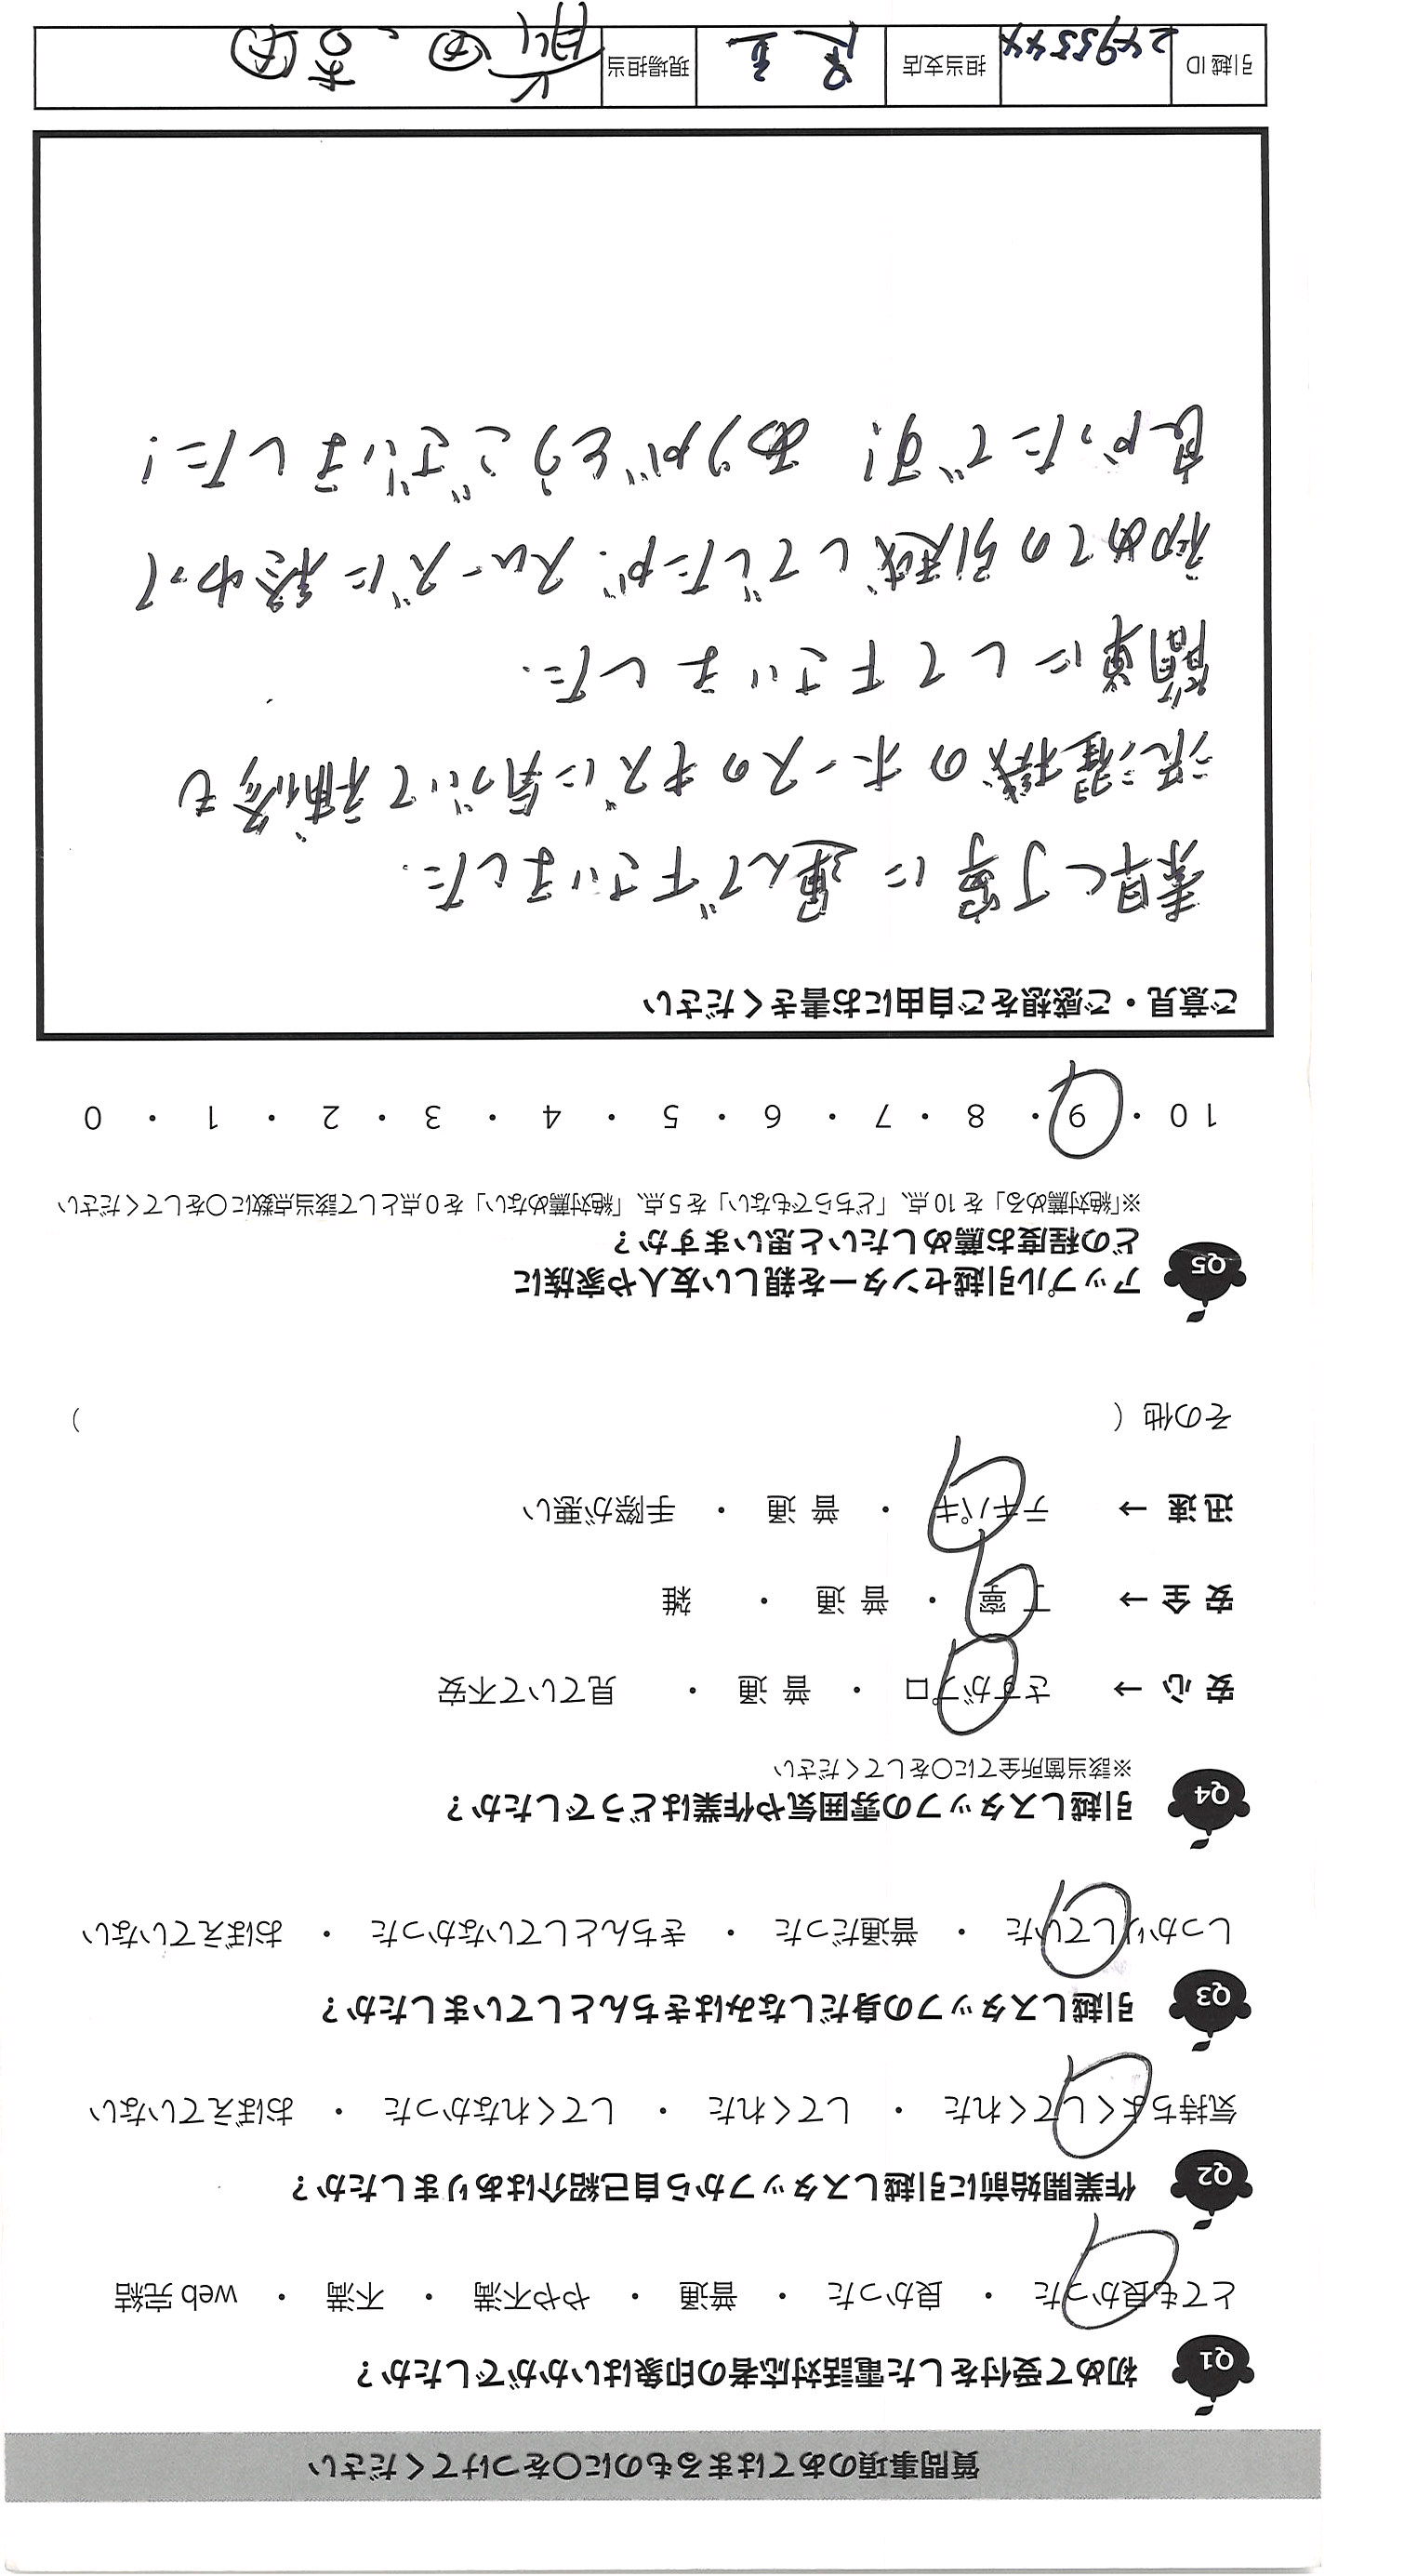 質問事項のあてはまるものに○をつけてください
Q1 初めて受付をした電話対応者の印象はいかがでしたか？
とても良かった ・ 良かった ・ 普通 ・ やや不満 ・ 不満 ・ web 完結
Q2 作業開始前に引越しスタッフから自己紹介はありましたか？
気持ちよくしてくれた ・ してくれた ・ してくれなかった ・ おぼえていない
Q3 引越しスタッフの身だしなみはきちんとしていましたか？
しっかりしていた ・ 普通だった ・ きちんとしていなかった ・ おぼえていない
Q4 引越しスタッフの雰囲気や作業はどうでしたか？
※該当箇所全てに○をしてください
安心 → さすがプロ ・ 普通 ・ 見ていて不安
安全 → 丁寧 ・ 普通 ・ 雑
迅速 → テキパキ ・ 普通 ・ 手際が悪い
その他（ ）
Q5 アップル引越センターを親しい友人や家族に
どの程度お薦めしたいと思いますか？
※「絶対薦める」を 10 点、「どちらでもない」を 5 点、「絶対薦めない」を 0 点として該当点数に○をしてください
10 ・ 9 ・ 8 ・ 7 ・ 6 ・ 5 ・ 4 ・ 3 ・ 2 ・ 1 ・ 0
ご意見・ご感想をご自由にお書きください
素早く丁寧に運んで下さいました.
洗濯機のホースのキズに気づいて補修も
簡単にして下さいました.
初めての引越しでしたが、スムーズに終わって
良かったです! ありがとうございました!
引越 ID 2495544 担当支店 現場担当